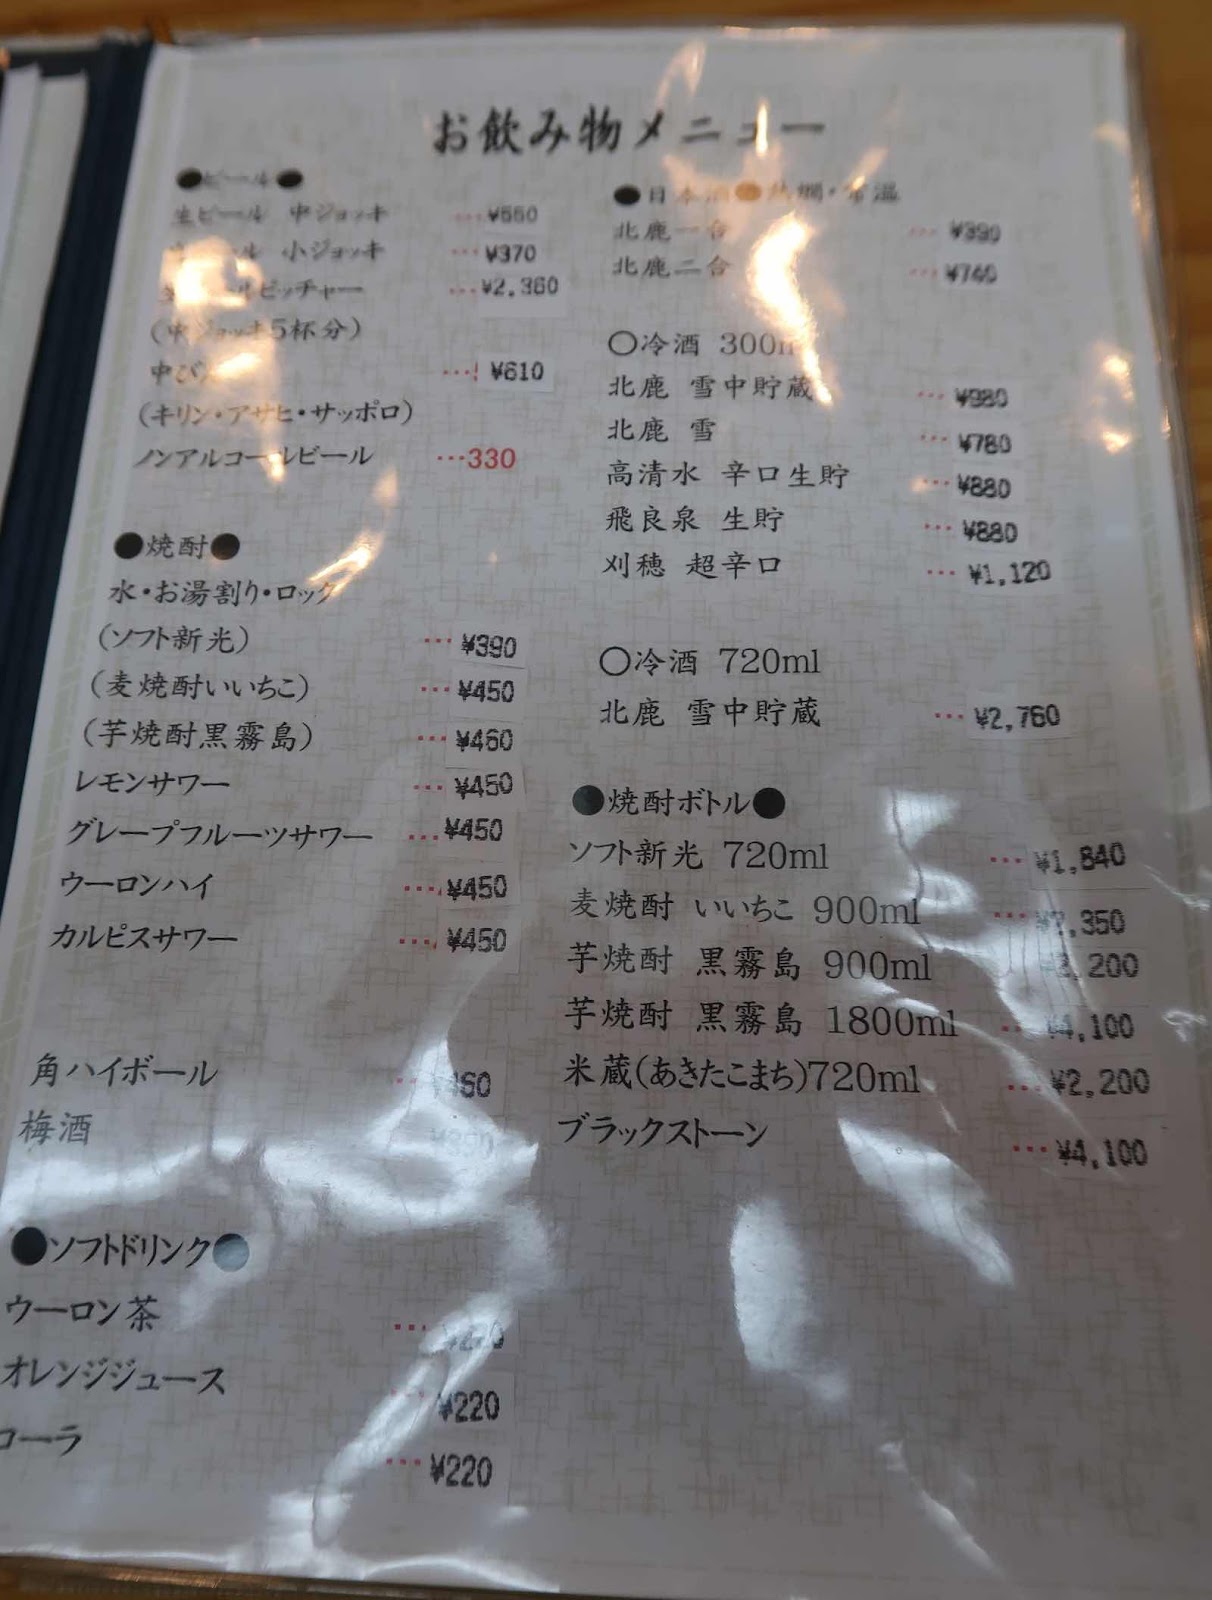 お飲み物メニュー
●ビール●
生ビール 中ジョッキ …¥560
ール 小ジョッキ …¥370
ルピッチャー …¥2,360
(中ジョッキ5杯分)
中び …¥610
(キリン・アサヒ・サッポロ)
ノンアルコールビール …330
●焼酎●
水・お湯割り・ロック
(ソフト新光) …¥390
(麦焼酎いいちこ) …¥450
(芋焼酎黒霧島) …¥460
レモンサワー …¥450
グレープフルーツサワー …¥450
ウーロンハイ …¥450
カルピスサワー …¥450
角ハイボール …¥460
梅酒
●ソフトドリンク●
ウーロン茶 …
オレンジジュース …¥220
コーラ …¥220
●日本酒●熱燗・常温
北鹿一合 …¥390
北鹿二合 …¥740
○冷酒 300m
北鹿 雪中貯蔵 …¥980
北鹿 雪 …¥780
高清水 辛口生貯 …¥880
飛良泉 生貯 …¥880
刈穂 超辛口 …¥1,120
○冷酒 720ml
北鹿 雪中貯蔵 …¥2,760
●焼酎ボトル●
ソフト新光 720ml …¥1,840
麦焼酎 いいちこ 900ml …¥2,350
芋焼酎 黒霧島 900ml ,200
芋焼酎 黒霧島 1800ml …¥4,100
米蔵(あきたこまち)720ml …¥2,200
ブラックストーン …¥4,100